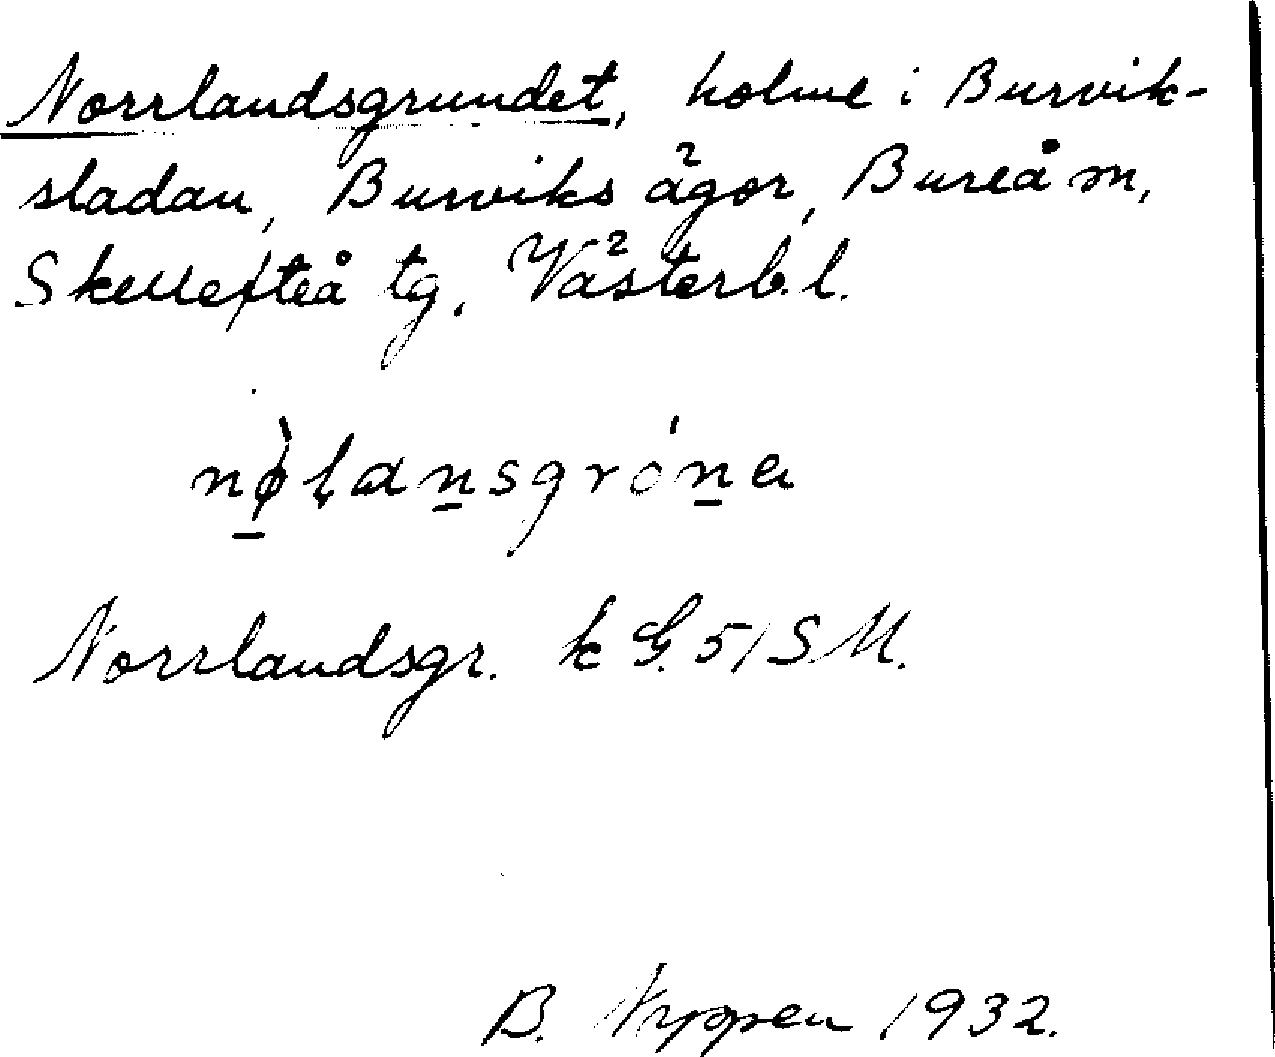 Norrlandsgrundet, holme i Burvik-
sladan, Burviks ägor, Bureå sn,
Skellefteå tg, Västerb. l.
nø̀l̥ansgróna
Norrlandsgr. k G. 51 S M.
B. Nyppen 1932.